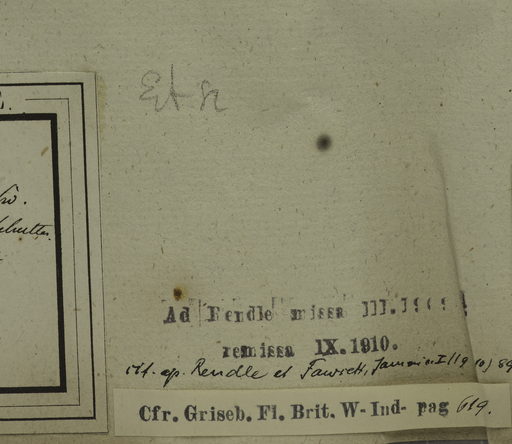 Et N
Ad Rendle missa III.1909
remissa IX.1910.
cit. ap. Rendle et Fawcett, Jamaica I (1910) 89
Cfr. Griseb. Fl. Brit. W-Ind- pag 619.